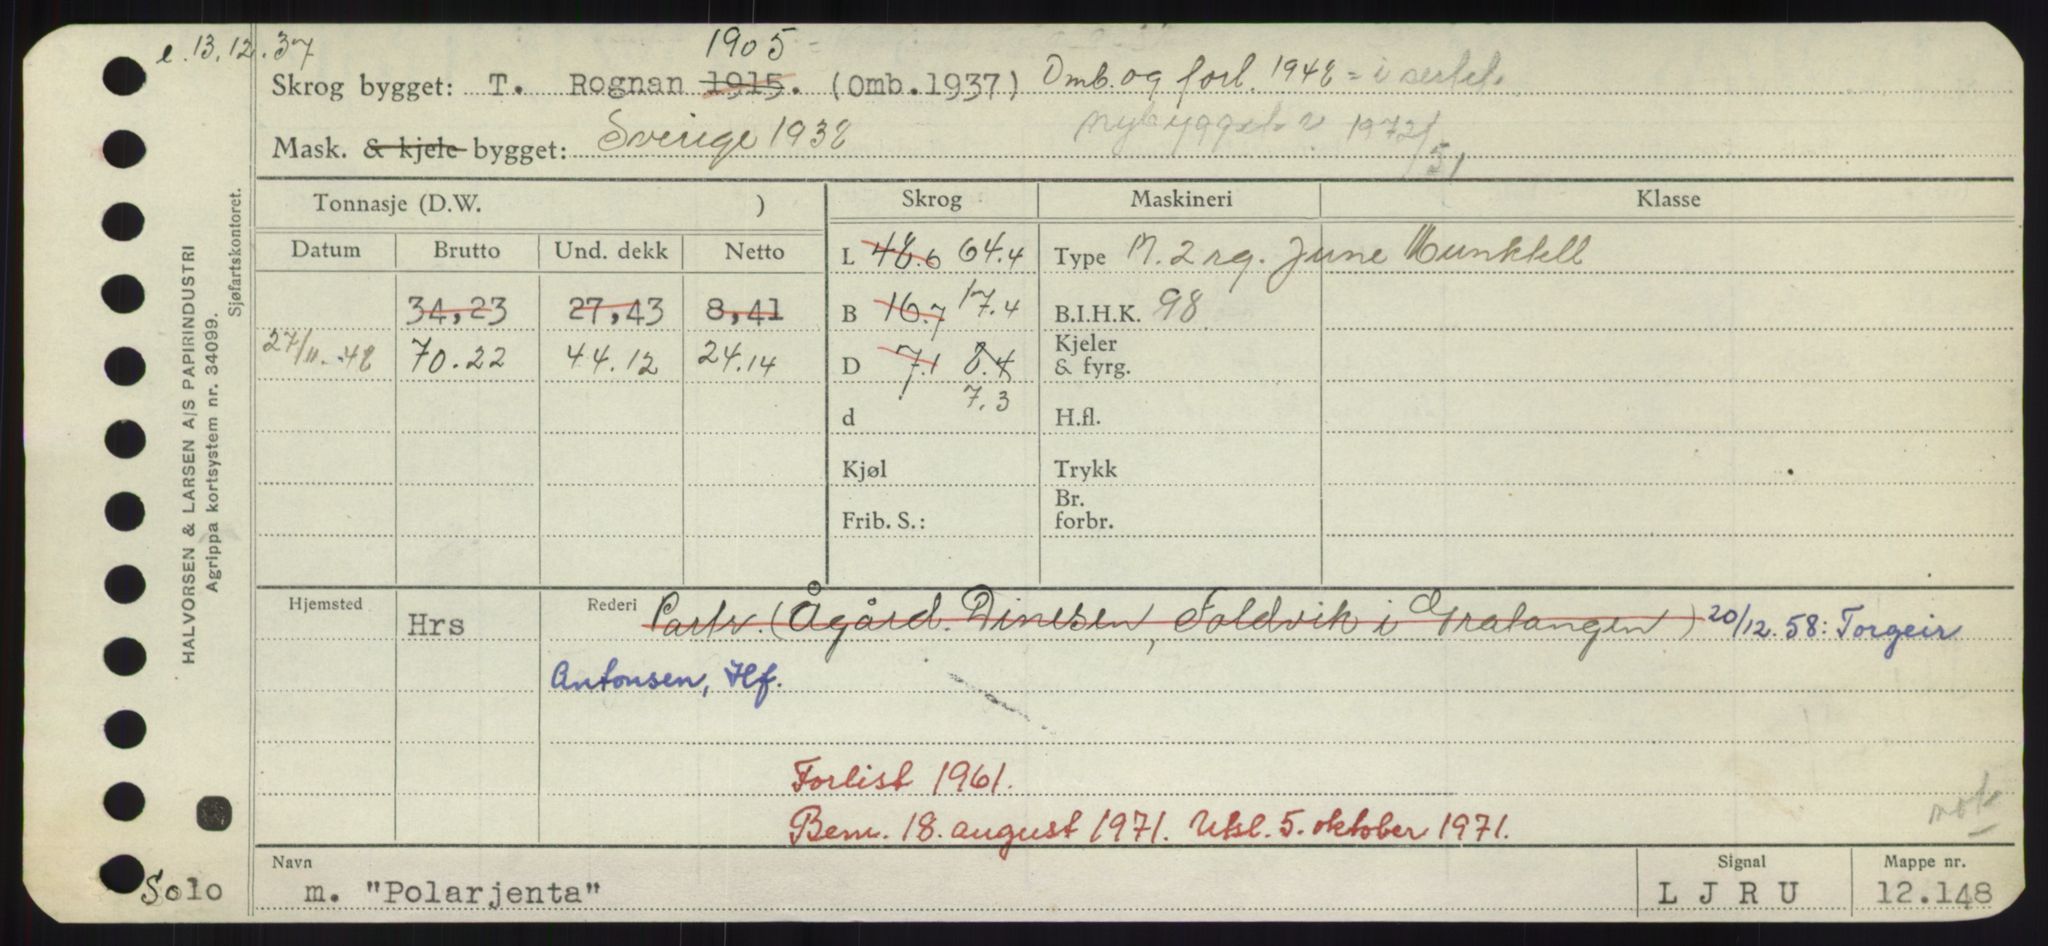 e. 13.12.37
1905
Skrog bygget: T. Rognan 1915. (Omb.1937) Omb. og forl. 1948 = i sertif.
nybygget 1972/51
Mask. & kjele bygget: Sverige 1938
Tonnasje (D.W. ) Skrog Maskineri Klasse
Datum Brutto Und. dekk Netto
L 48.6 64.4 Type M. 2 sg. June Munktell
34,23 27,43 8,41 B 16.7 17.4 B.I.H.K. 98
27/11.48 70.22 44.12 24.14 D 7.1 8.4 Kjeler & fyrg.
7.3
d H.fl.
Kjøl Trykk
Frib. S.: Br. forbr.
Hjemsted Hrs Rederi Partr. (Ågård Dinesen, Foldvik i Gratangen) 20/12.58: Torgeir
Antonsen, Hf.
Forlist 1961.
Bem. 18. august 1971. Utsl. 5. oktober 1971.
not
Navn Signal Mappe nr.
Solo m. "Polarjenta" L J R U 12.148
HALVORSEN & LARSEN A/S PAPIRINDUSTRI
Agrippa kortsystem nr. 34099.
Sjøfartskontoret.